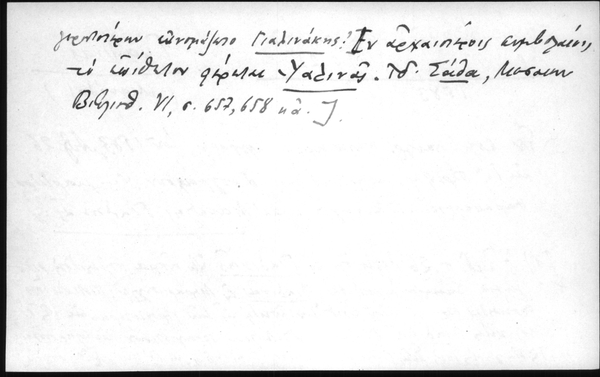 γεροντότερον ὠνομάζετο Γιαλινάκης! [Ἐν ἀρχαιοτέροις συμβολαίοις
τὸ ἐπίθετον φέρεται Ὑαλινᾶς. Ἰδ. Σάθα, Μεσαιων.
Βιβλιοθ. VI, σ. 657, 658 κἀ.].